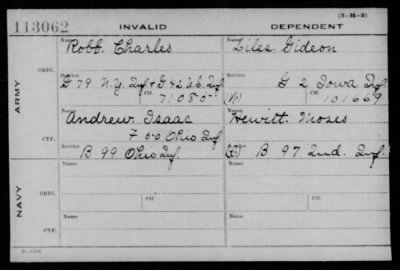 113062
INVALID
DEPENDENT
(3-14-3)
Name
Robb. Charles
Name
Liles Gideon
ARMY
ORIG.
Service
G 79 N.Y. Inf & G 42 U.S. Inf
Ctf.
71085
Service
G 2 Iowa Inf
Ctf.
101669
CTF.
Name
Andrew. Isaac
F Ohio Inf.
Service
B 99 Ohio Inf.
Name
Hewitt. Moses
Service
B 97 Ind. Inf.
NAVY
ORIG.
Name
Name
Service
Ctf.
Service
Ctf.
CTF.
Name
Name
Service
Service